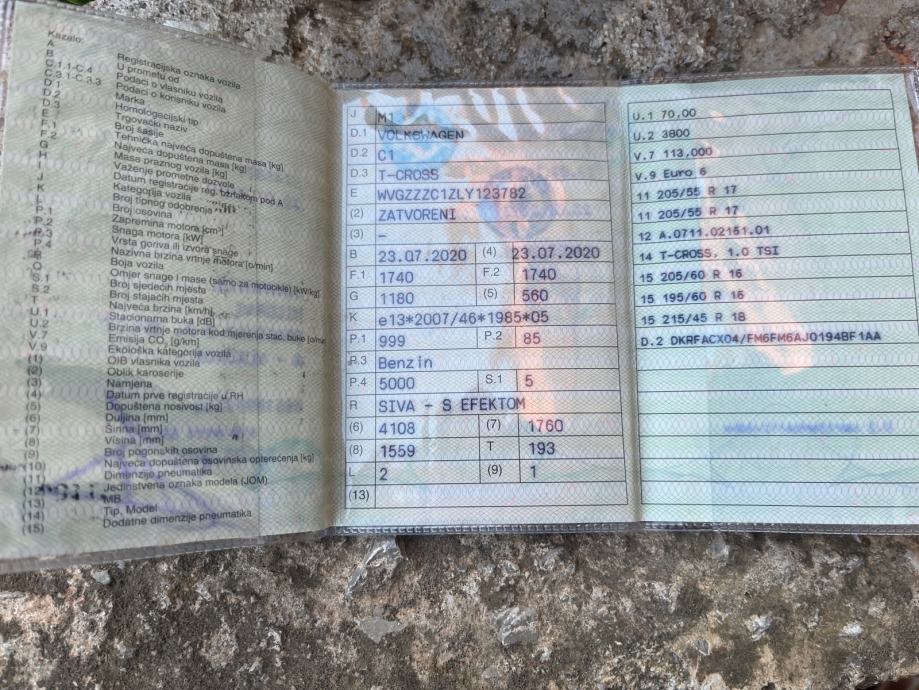 Kazalo:
A Registracijska oznaka vozila
B U prometu od
C.1.1-C.4 Podaci o vlasniku vozila
C.3.1-C.3.3 Podaci o korisniku vozila
D.1 Marka
D.2 Homologacijski tip
D.3 Trgovački naziv
E Broj šasije
F.1 Tehnička najveća dopuštena masa [kg]
F.2 Najveća dopuštena masa [kg]
G Masa praznog vozila [kg]
H Važenje prometne dozvole
I Datum registracije reg. oznakom pod A
J Kategorija vozila
K Broj tipnog odobrenja
L Broj osovina
P.1 Zapremina motora [cm³]
P.2 Snaga motora [kW]
P.3 Vrsta goriva ili izvora snage
P.4 Nazivna brzina vrtnje motora [o/min]
R Boja vozila
Q Omjer snage i mase (samo za motocikle) [kW/kg]
S.1 Broj sjedećih mjesta
S.2 Broj stajaćih mjesta
T Najveća brzina [km/h]
U.1 Stacionarna buka [dB]
U.2 Brzina vrtnje motora kod mjerenja stac. buke
V.7 Emisija CO₂ [g/km]
V.9 Ekološka kategorija vozila
(1) OIB vlasnika vozila
(2) Oblik karoserije
(3) Namjena
(4) Datum prve registracije u RH
(5) Dopuštena nosivost [kg]
(6) Duljina [mm]
(7) Širina [mm]
(8) Visina [mm]
(9) Broj pogonskih osovina
(10) Najveća dopuštena osovinska opterećenja [kg]
(11) Dimenzije pneumatika
(12) Jedinstvena oznaka modela (JOM)
(13) MB
(14) Tip, Model
(15) Dodatne dimenzije pneumatika
J M1
D.1 VOLKSWAGEN
D.2 C1
D.3 T-CROSS
E WVGZZZC1ZLY123782
(2) ZATVORENI
(3) –
B 23.07.2020 (4) 23.07.2020
F.1 1740 F.2 1740
G 1180 (5) 560
K e13*2007/46*1985*05
P.1 999 P.2 85
P.3 Benzin
P.4 5000 S.1 5
R SIVA - S EFEKTOM
(6) 4108 (7) 1760
(8) 1559 T 193
L 2 (9) 1
(13)
U.1 70,00
U.2 3800
V.7 113,000
V.9 Euro 6
11 205/55 R 17
11 205/55 R 17
12 A.0711.02161.01
14 T-CROSS, 1.0 TSI
15 205/60 R 16
15 195/60 R 16
15 215/45 R 18
D.2 DKRFACX04/FM6FM6AJ0194BF1AA